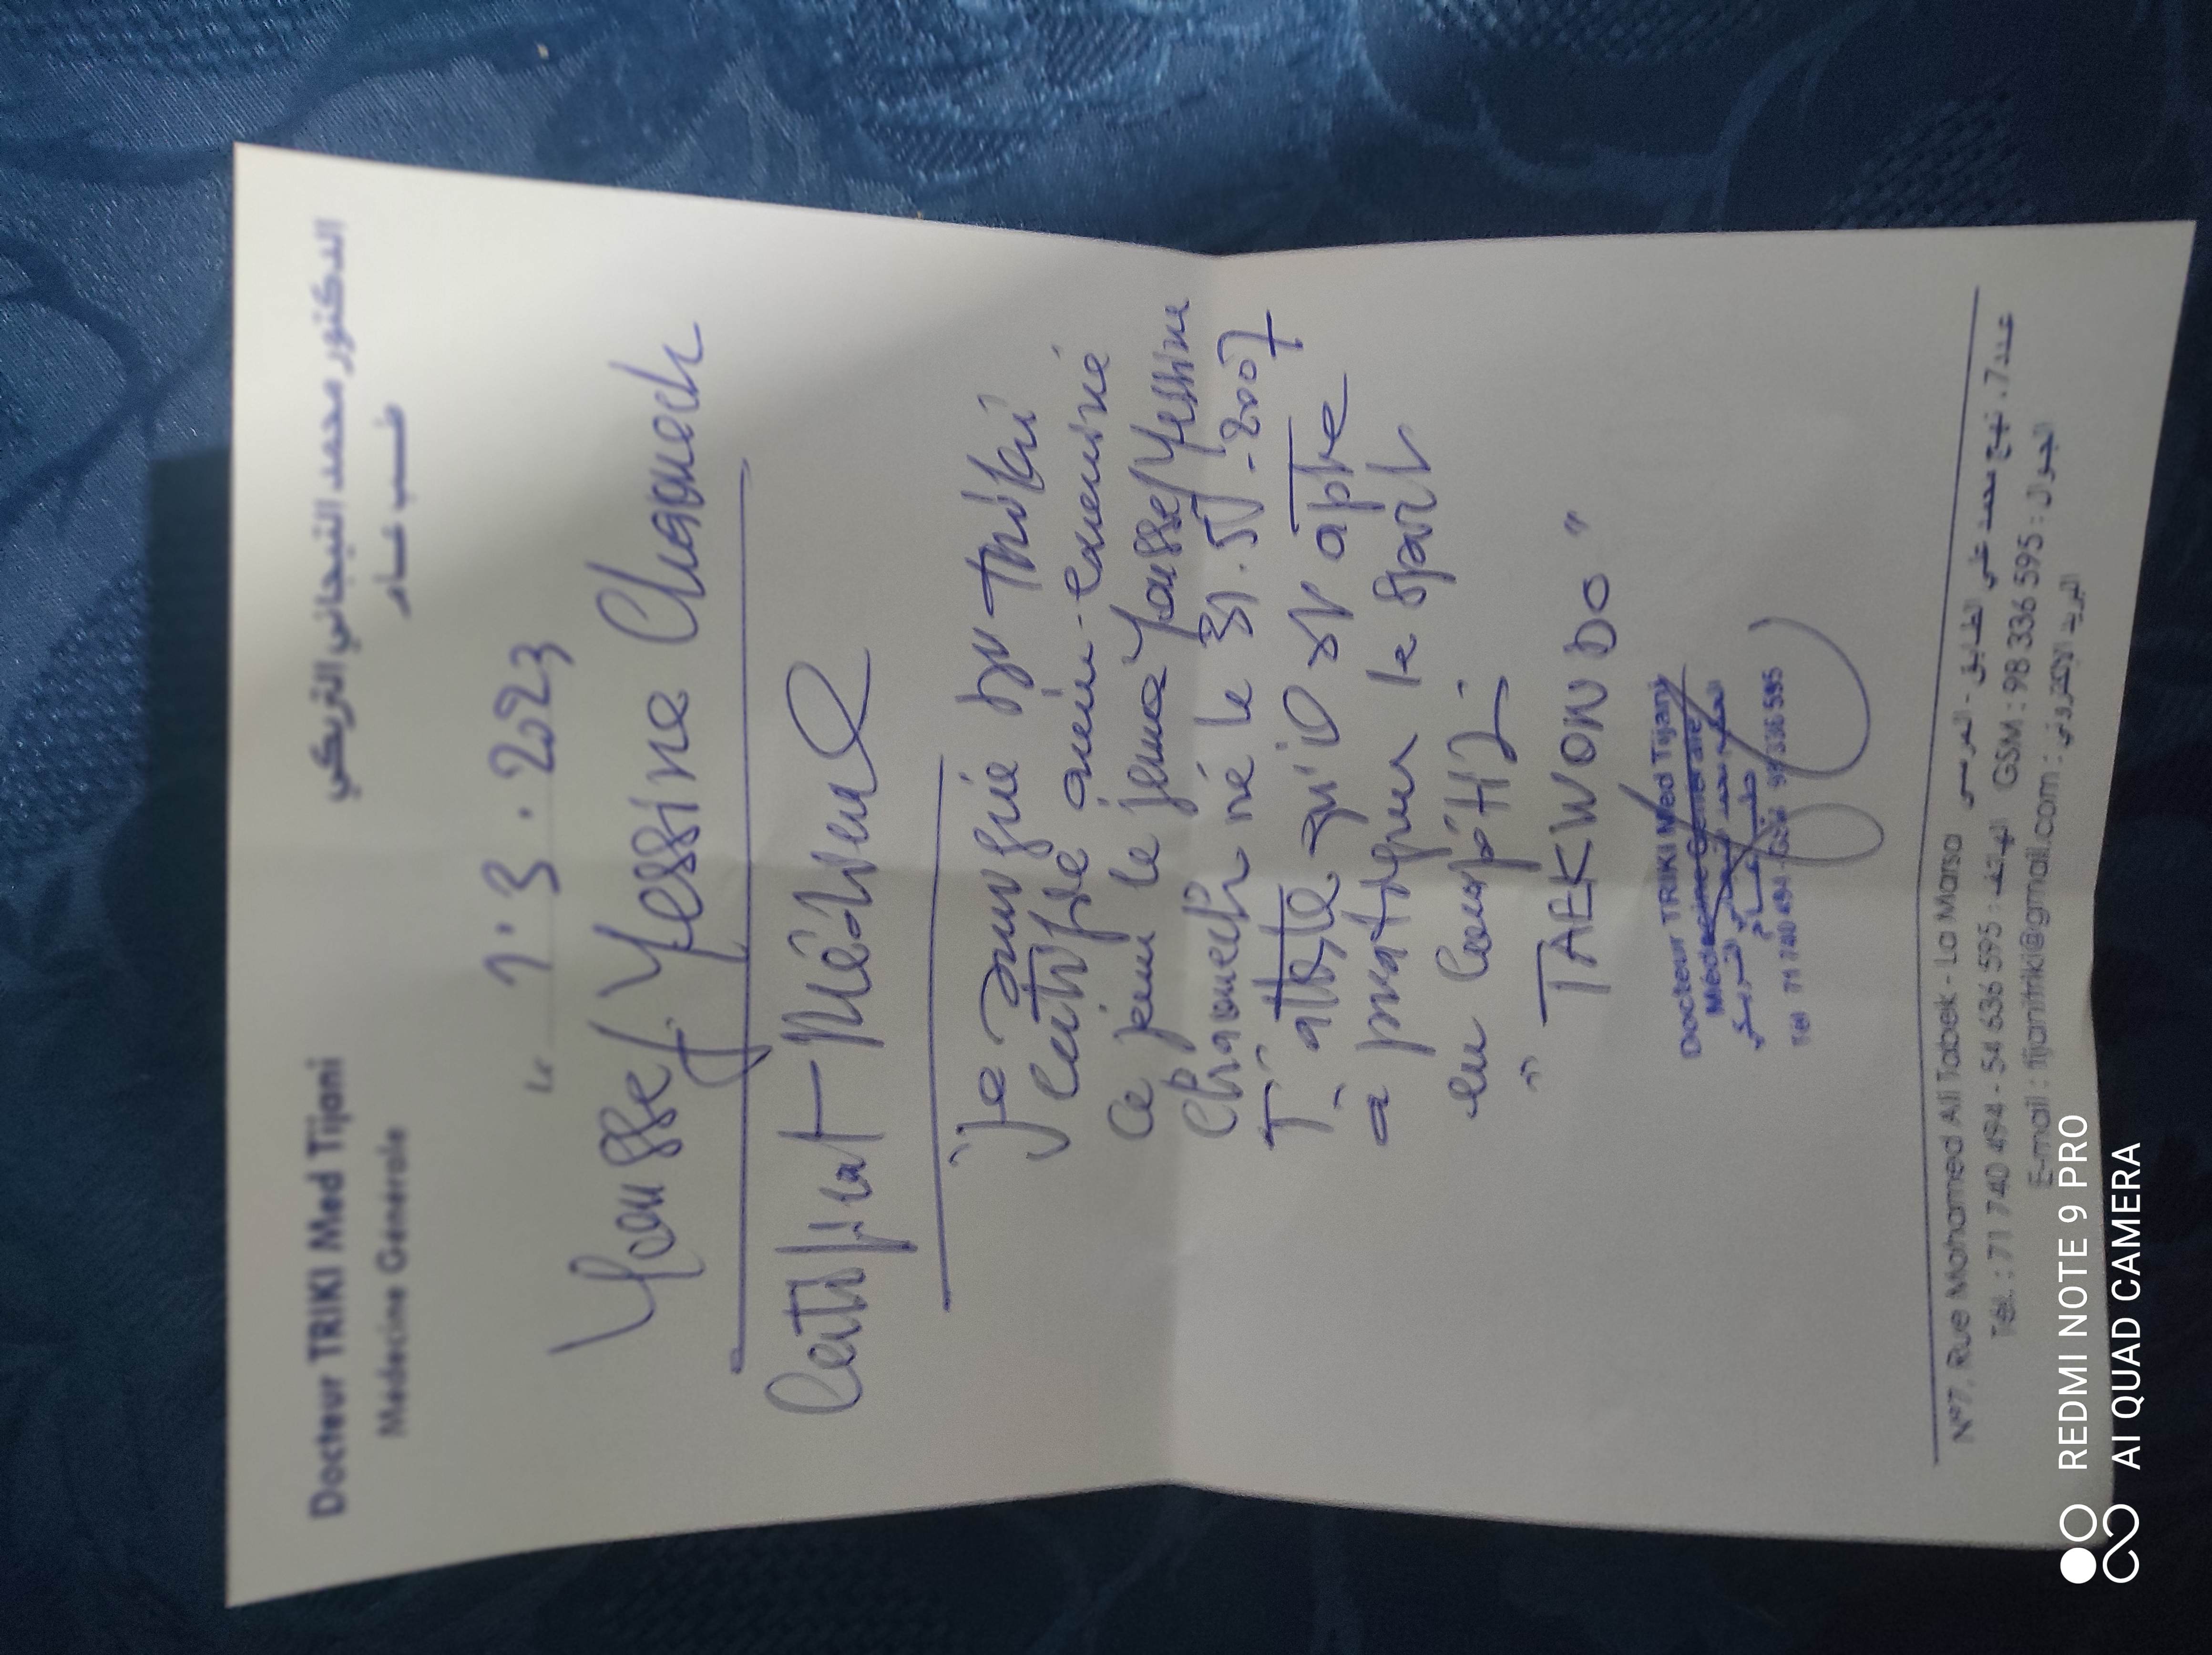 Docteur TRIKI Med Tijani
Médecine Générale
الدكتور محمد التيجاني التريكي
طب عام
Le 1.3.2023
Youssef Yessine Chaouech
Certificat Médical
Je soussigné Dr Triki
certifie avoir examiné
ce jour le jeune Youssef Yessine
Chaouech né le 31.5.2007
J'atteste qu'il est apte
à pratiquer le sport
en compéti
" TAEKWONDO "
Docteur TRIKI Med Tijani
Médecine Générale
Tél 71 740 494 - GSM 98 336 595
N°7, Rue Mohamed Ali Tabek - La Marsa عدد 7، نهج محمد علي الطابق - المرسى
Tél. : 71 740 494 - 54 636 595 : الهاتف GSM : 98 336 595 : الجوال
E-mail : tijanitriki@gmail.com : البريد الإلكتروني
REDMI NOTE 9 PRO
AI QUAD CAMERA